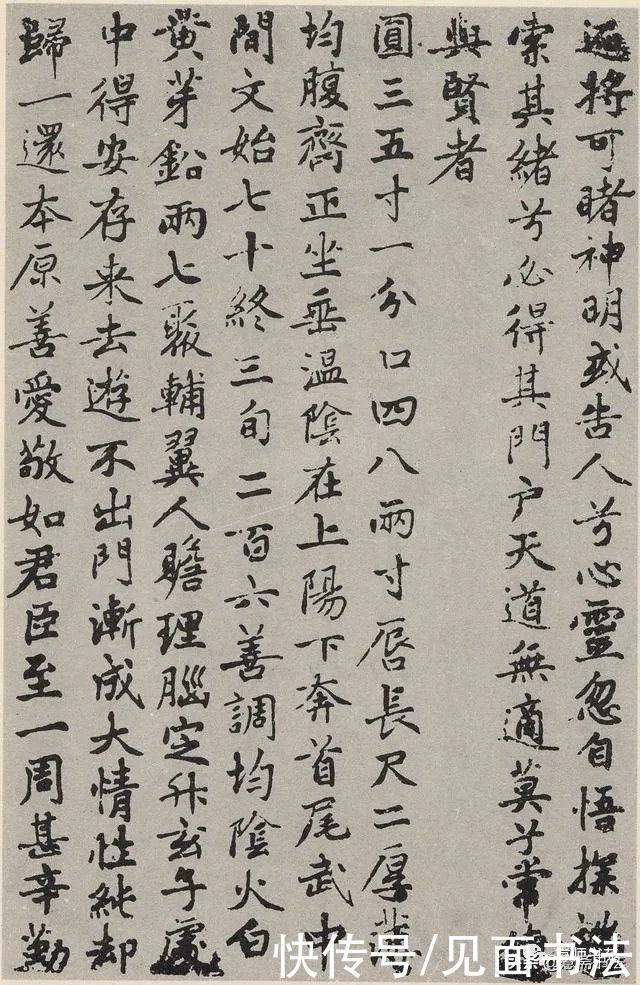 遍将可睹神明或告人兮心靈忽自悟探端
索其緒兮必得其門户天道無適莫兮常傳
與賢者
圓三五寸一分口四八兩寸唇長尺二厚薄
均腹齊正坐垂溫陰在上陽下奔首尾武中
間文始七十終三旬二百六善調均陰火白
黄芽鉛兩七聚輔翼人贍理腦定升玄子處
中得安存来去遊不出門漸成大情性純却
歸一還本原善愛敬如君臣至一周甚辛勤
快传号/见面书法